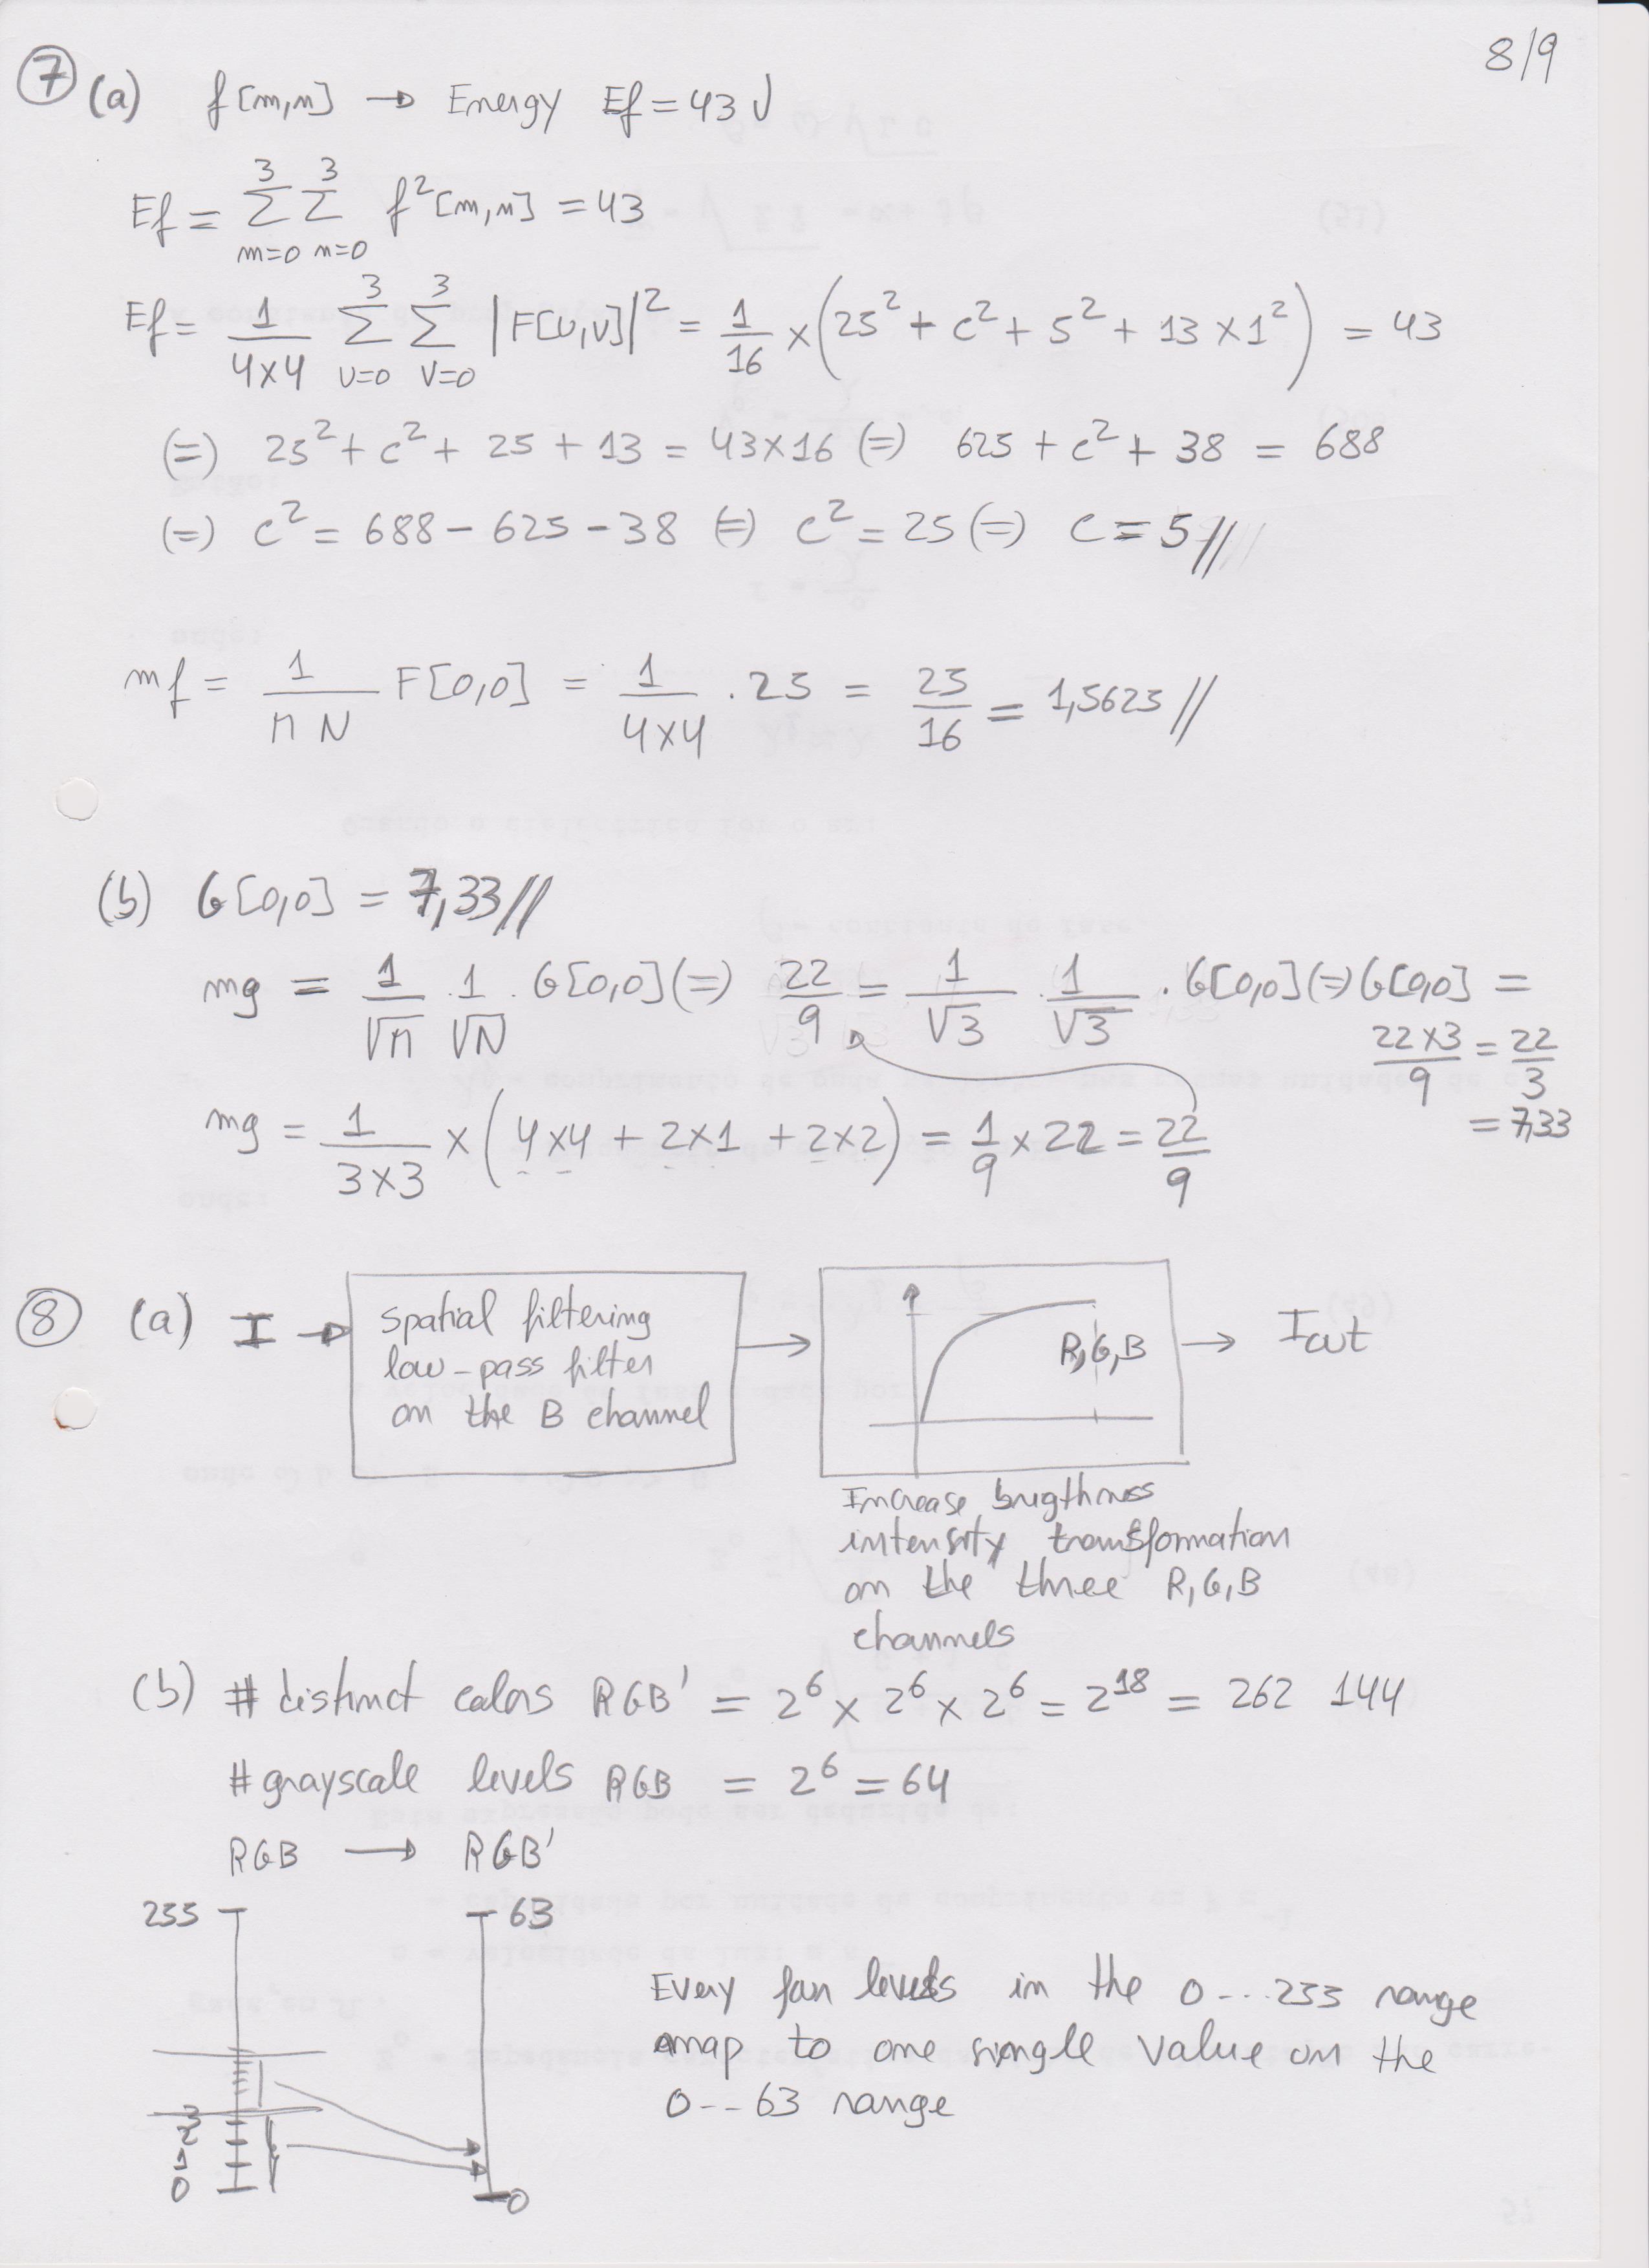 8/9
⑦ (a) f[m,n] → Energy Ef = 43 J
Ef = Σ_{m=0}^{3} Σ_{n=0}^{3} f²[m,n] = 43
Ef = 1/(4×4) Σ_{u=0}^{3} Σ_{v=0}^{3} |F[u,v]|² = 1/16 × (25² + c² + 5² + 13 × 1²) = 43
(=) 25² + c² + 25 + 13 = 43×16 (=) 625 + c² + 38 = 688
(=) c² = 688 - 625 - 38 (=) c² = 25 (=) c = 5 //
mf = 1/(M N) F[0,0] = 1/(4×4) . 25 = 25/16 = 1,5625 //
(b) G[0,0] = 7,33 //
mg = 1/√M . 1/√N . G[0,0] (=) 22/9 = 1/√3 . 1/√3 . G[0,0] (=) G[0,0] =
22×3/9 = 22/3
= 7,33
mg = 1/(3×3) × (4×4 + 2×1 + 2×2) = 1/9 × 22 = 22/9
⑧ (a) I → spatial filtering
low-pass filter
on the B channel
→ R,G,B → Iout
Increase brigthness
intensity transformation
on the three R,G,B
channels
(b) # distinct colors RGB' = 2⁶ × 2⁶ × 2⁶ = 2¹⁸ = 262 144
# grayscale levels RGB = 2⁶ = 64
RGB → RGB'
255 63
Every four levels in the 0...255 range
map to one single value on the
0--63 range
3
2
1
0 0